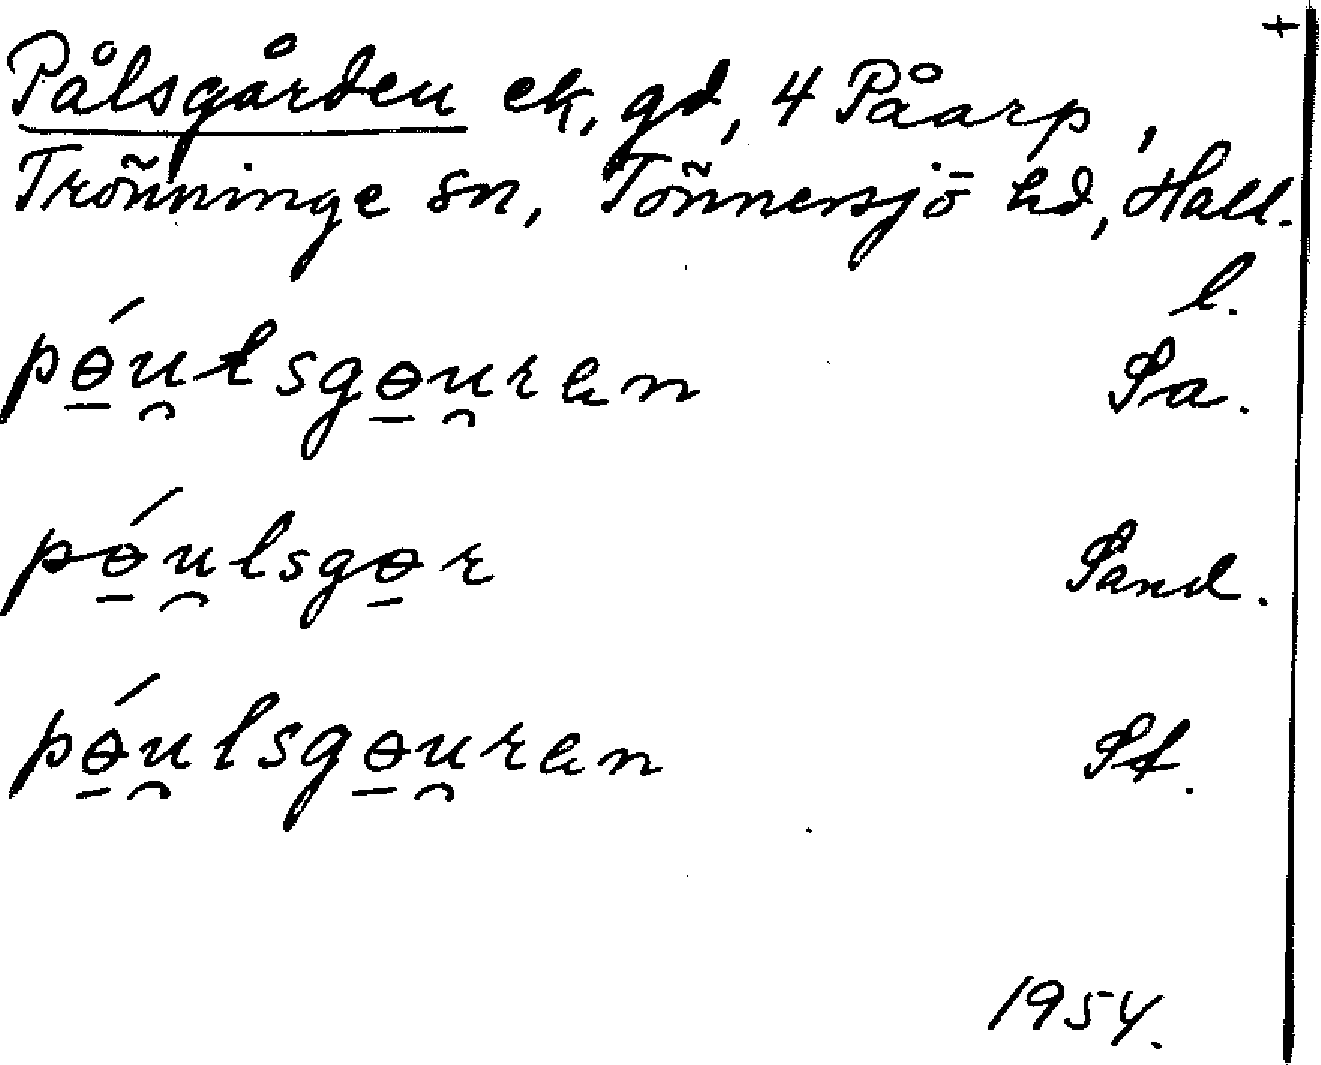 +
Pålsgården ek, gd, 4 Påarp,
Trönninge sn, Tönnersjö hd, Hall.
l.
pɵ́u̯lsgɵu̯ran Sa.
pɵ́u̯lsgɵr Sand.
pɵ́u̯lsgɵu̯ran St.
1954.